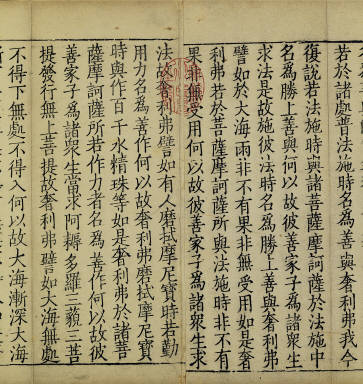 利弗我今
復說若法施時與諸菩薩摩訶薩於法施中
名為勝上善與何以故彼善家子為諸衆生
求法是故施彼法時名為勝上善與奢利弗
譬如於大海雨非不有果非無受用如是奢
利弗若於菩薩摩訶薩所與法施時非不有
果非無受用何以故彼善家子為諸衆生求
法故奢利弗譬如有人磨拭摩尼寶時若勤
用力名為善作何以故奢利弗磨拭摩尼寶
時與作百千水精珠等如是奢利弗於諸菩
薩摩訶薩所若作力者名為善作何以故彼
善家子為諸衆生當求阿耨多羅三藐三菩
提發行無上菩提故奢利弗譬如大海無處
不得下無處不得入何以故大海漸深大海